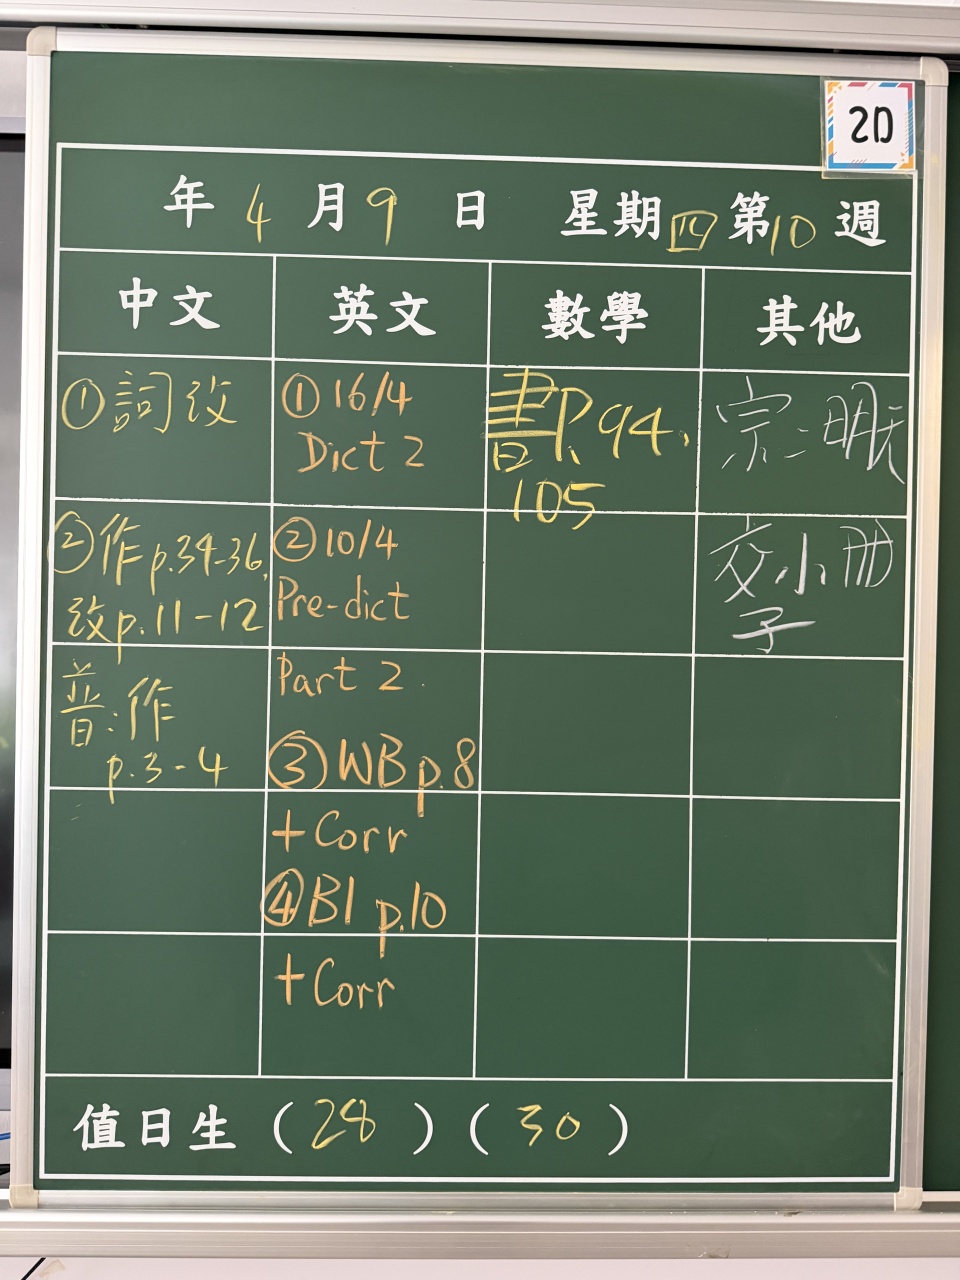 2D
年 4 月 9 日 星期四 第10週
中文
英文
數學
其他
①詞改
②作p.34-36,
改p.11-12
普:作
p.3-4
①16/4
Dict 2
②10/4
Pre-dict
Part 2
③WB p.8
+Corr
④B1 p.10
+Corr
書P.94,
105
宗:明天
交小冊
子
值日生（28）（30）